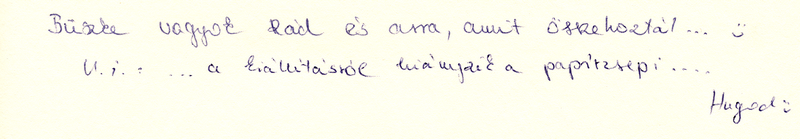 Büszke vagyok Rád és arra, amit összehoztál... :)
U.i.: ... a kiállításról hiányzik a papírzsepi....
Hugod :)